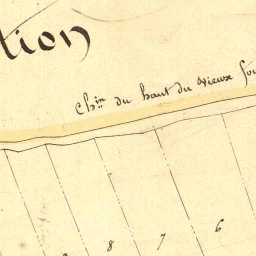 tion
Ch.in du haut du vieux
8 7 6